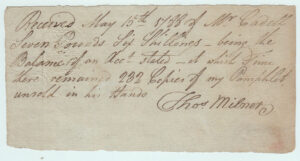 Received May 15th 1788 of Mr Cadell
Seven Pounds Six Shillings – being the
Balance of an Acct stated – at which Time
there remained 232 Copies of my Pamphlet
unsold in his Hands
Thos Milner